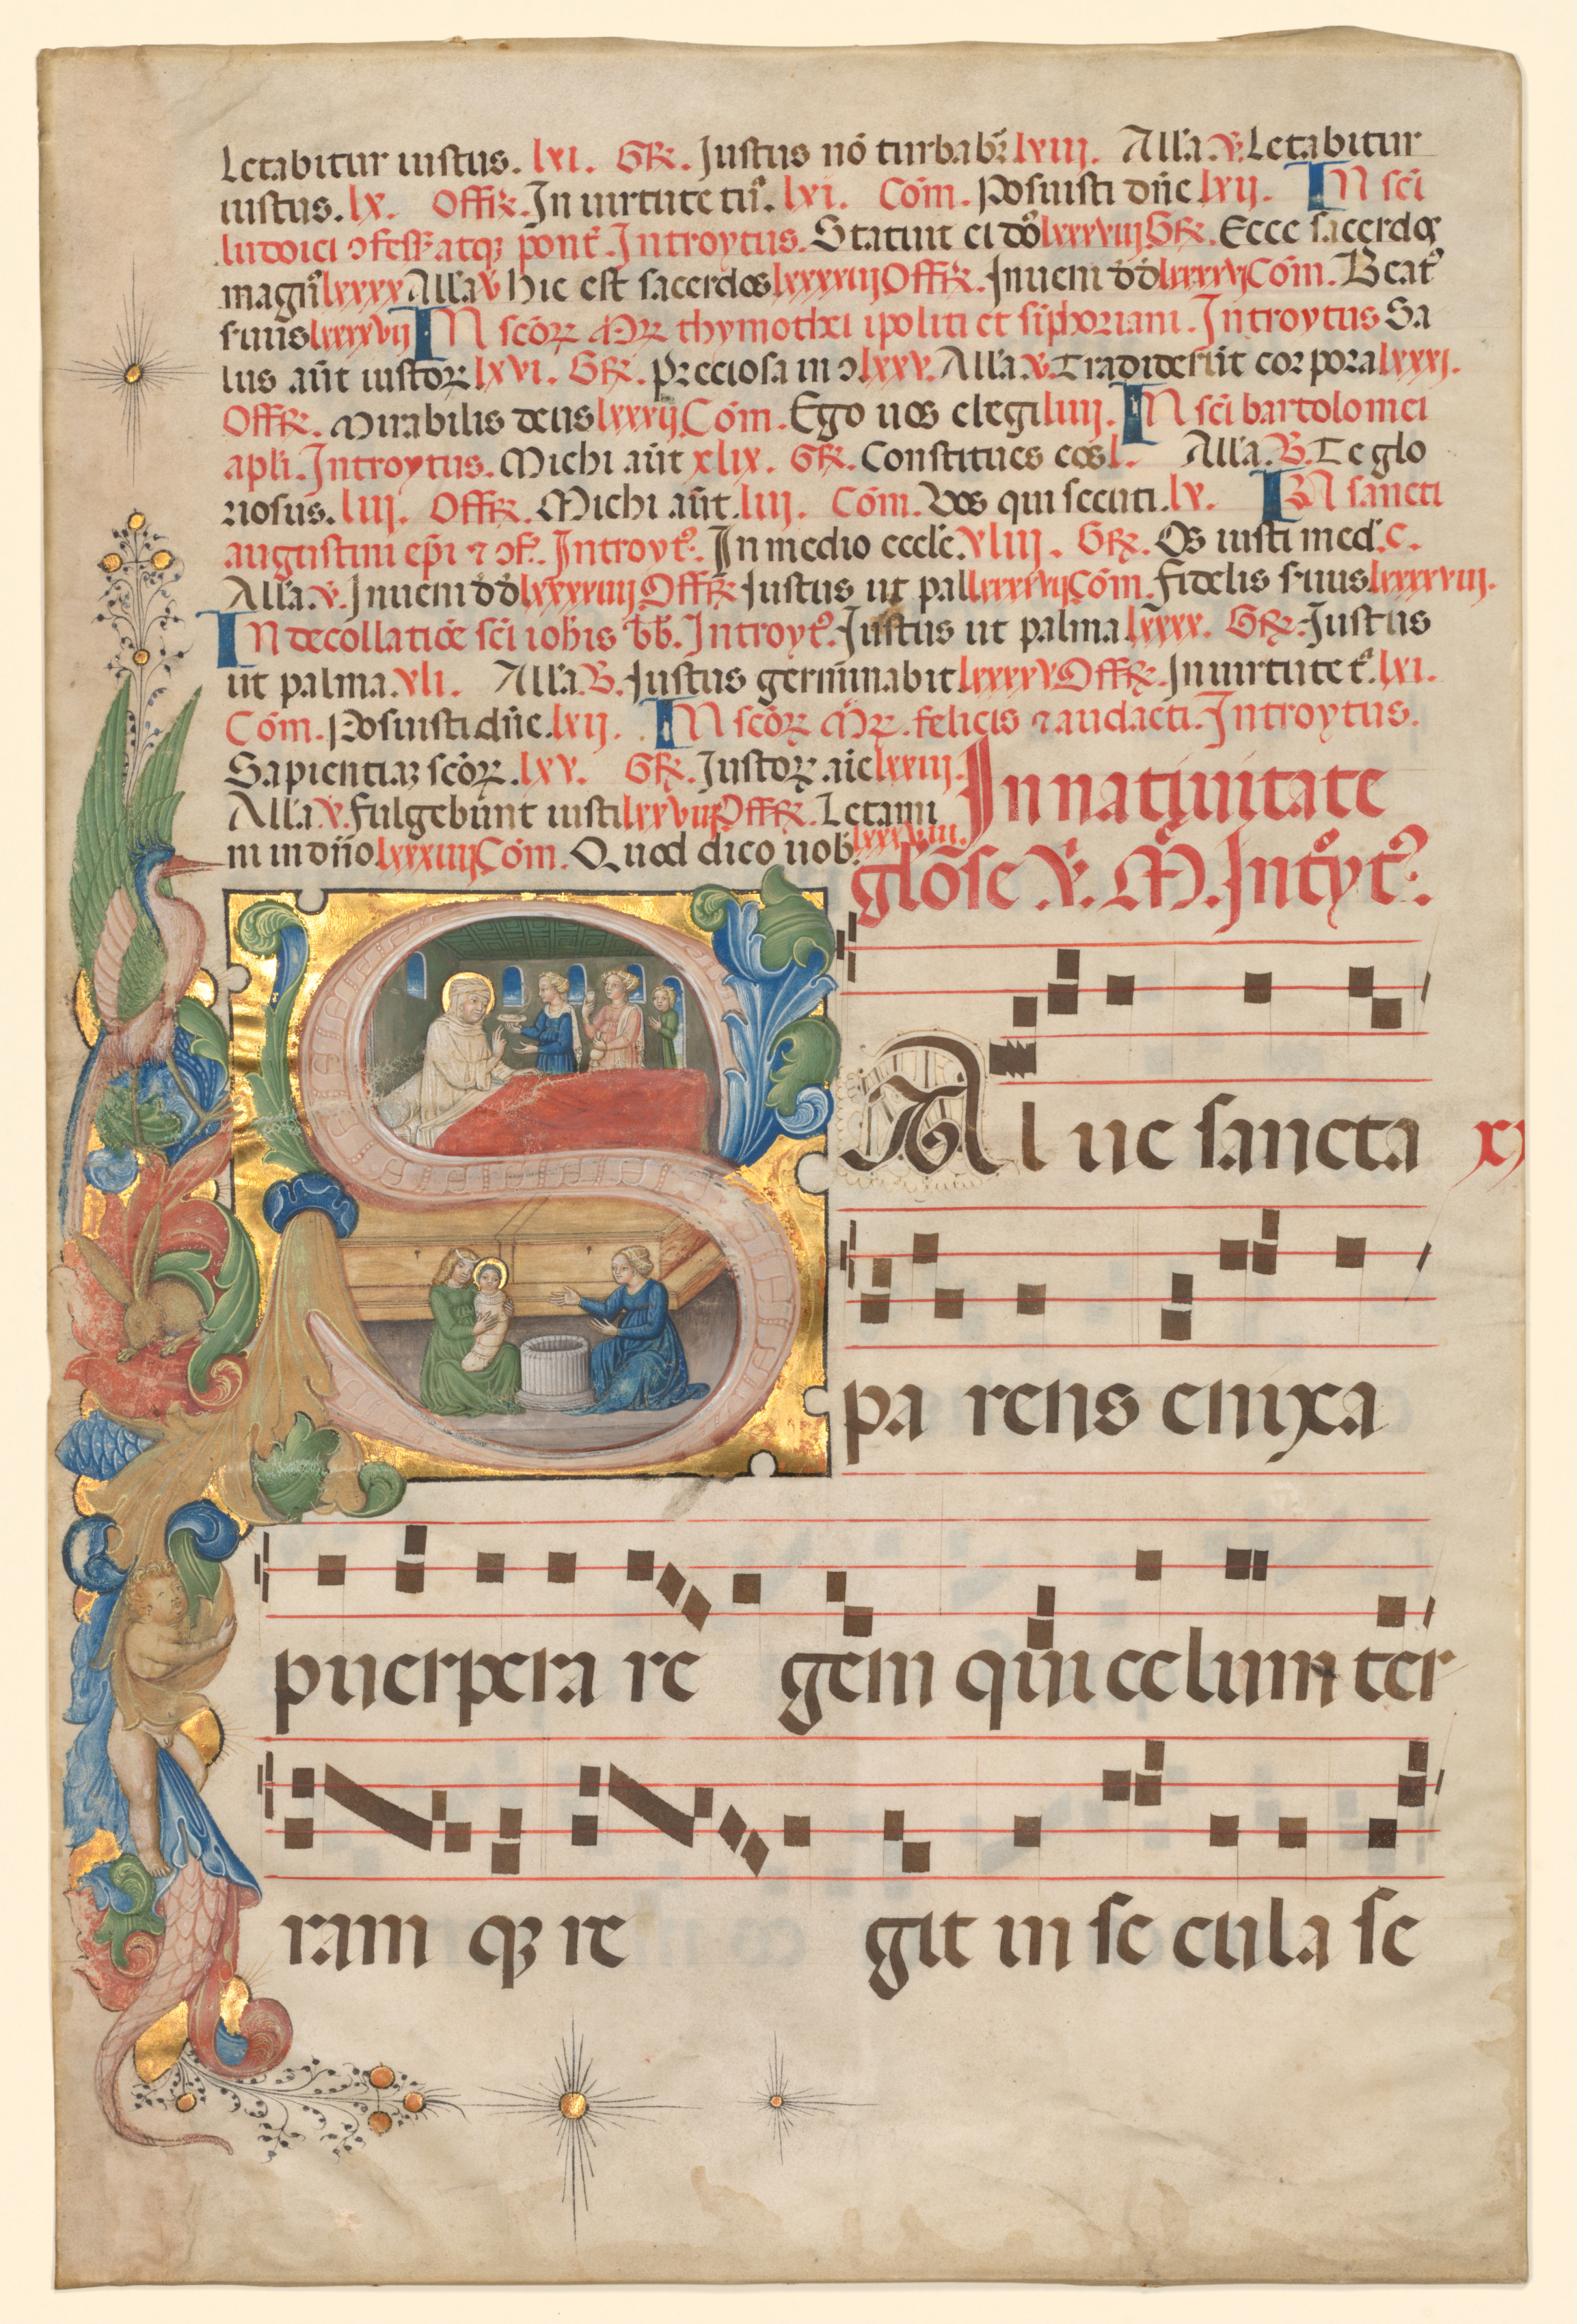 Letabitur iustus. lxi. GR. Justus nō turbab̄r lxiii. Alla. V. Letabitur
iustus. lx. OffR. In uirtute tu. lxi. Cōm. Posuisti dn̄e lxii. IN sci
ludoici ɔfess̄ atqꝫ pont̄. Introytus. Statuit ei dō lxxxviii GR. Ecce sacerdos
magn̄ lxxxx Alla V hic est sacerdos lxxxxiii OffR. Inueni dd lxxxxvi Cōm. Beat
suus lxxxxvii IN scōꝝ mrꝝ thymothei ipoliti et siphoriani. Introytus Sa
lus aūt iustoꝝ lxvi. GR. Preciosa in ɔ lxxv. Alla. V. Tradiderūt corpora lxxxi.
OffR. Mirabilis deus lxxxii Cōm. Ego uos elegi liiii. IN sci bartolomei
apli. Introytus. Michi aūt xlix. GR. Constitues eos l. Alla. B. Te glo
riosus. liii. OffR. Michi aūt. liii. Cōm. Vos qui secuti. lv. IN sancti
augustini epi ⁊ ɔf. Introyt. In medio eccle. xliii. GR. Os iusti med. c.
Alla. V. Inueni dd lxxxxiiii OffR Justus ut pal lxxxxvii Cōm. Fidelis suus lxxxxviii.
IN decollatiōe sci iohis bb. Introyt. Justus ut palma lxxxx. GR. Justus
ut palma. xli. Alla. B. Justus germinabit lxxxxv OffR. In uirtute t. lxi.
Cōm. Posuisti dn̄e. lxii. IN scōꝝ mrꝝ. felicis ⁊ audacti. Introytus.
Sapientiaꝫ scōꝝ. lxv. GR. Justoꝝ aīe lxxiii.
Alla. V. Fulgebunt iusti lxxviii OffR. Letami
ni in dn̄o lxxxiiii Cōm. Quod dico uob. lxxxviii.
In natiuitate
glōse V. M. Introyt.
SAl ue sancta xx
pa rens enixa
puerpera re gem qui celum ter
ram qꝫ re git in se cula se